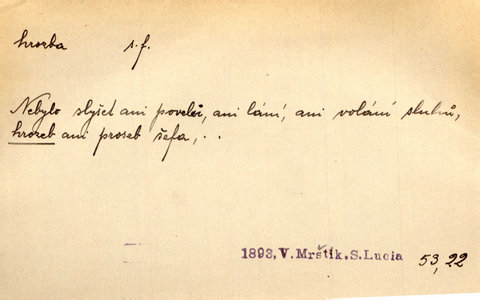 hrozba s. f.
Nebylo slyšet ani povelů, ani lání, ani volání sluhů,
hrozeb ani proseb šefa, . .
1893, V. Mrštík. S. Lucia 53, 22